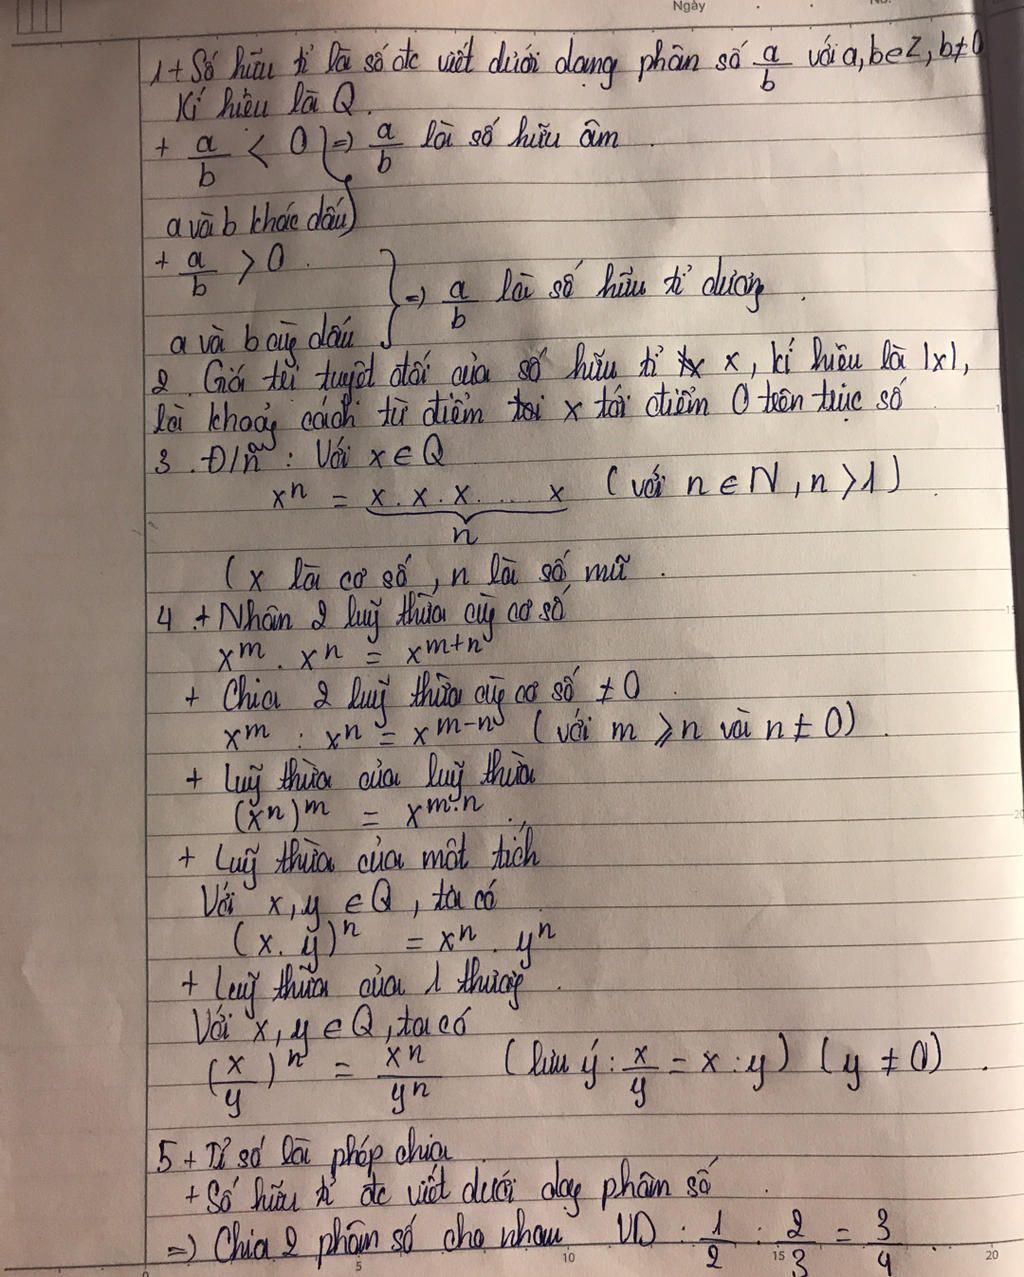 Ngày
1 + Số hữu tỉ là số đc viết dưới dạng phân số a/b với a, b ∈ Z, b ≠ 0
Kí hiệu là Q.
+ a/b < 0 } => a/b là số hữu âm.
a và b khác dấu
+ a/b > 0.
} => a/b là số hữu tỉ dương.
a và b cùg dấu
2. Giá trị tuyệt đối của số hữu tỉ x, kí hiệu là |x|,
là khoảg cách từ điểm x tới điểm 0 trên trục số
3. Đ/n: Với x ∈ Q
xⁿ = x . x . x. ... x (với n ∈ N, n > 1).
n
(x là cơ số, n là số mũ.
4. + Nhân 2 luỹ thừa cùg cơ số
x^m . x^n = x^(m+n)
+ Chia 2 luỹ thừa cùg cơ số ≠ 0.
x^m : x^n = x^(m-n) (với m ⩾ n và n ≠ 0).
+ Luỹ thừa của luỹ thừa
(x^n)^m = x^(m.n)
+ Luỹ thừa của một tích
Với x, y ∈ Q, ta có
(x. y)^n = x^n . y^n
+ Luỹ thừa của 1 thươg.
Với x, y ∈ Q, ta có
(x/y)^n = x^n/y^n (lưu ý: x/y = x : y) (y ≠ 0).
5 + Tỉ số là phép chia
+ Số hữu tỉ đc viết dưới dạg phân số.
=> Chia 2 phân số cho nhau VD: 1/2 : 2/3 = 3/4.
5 10 15 20